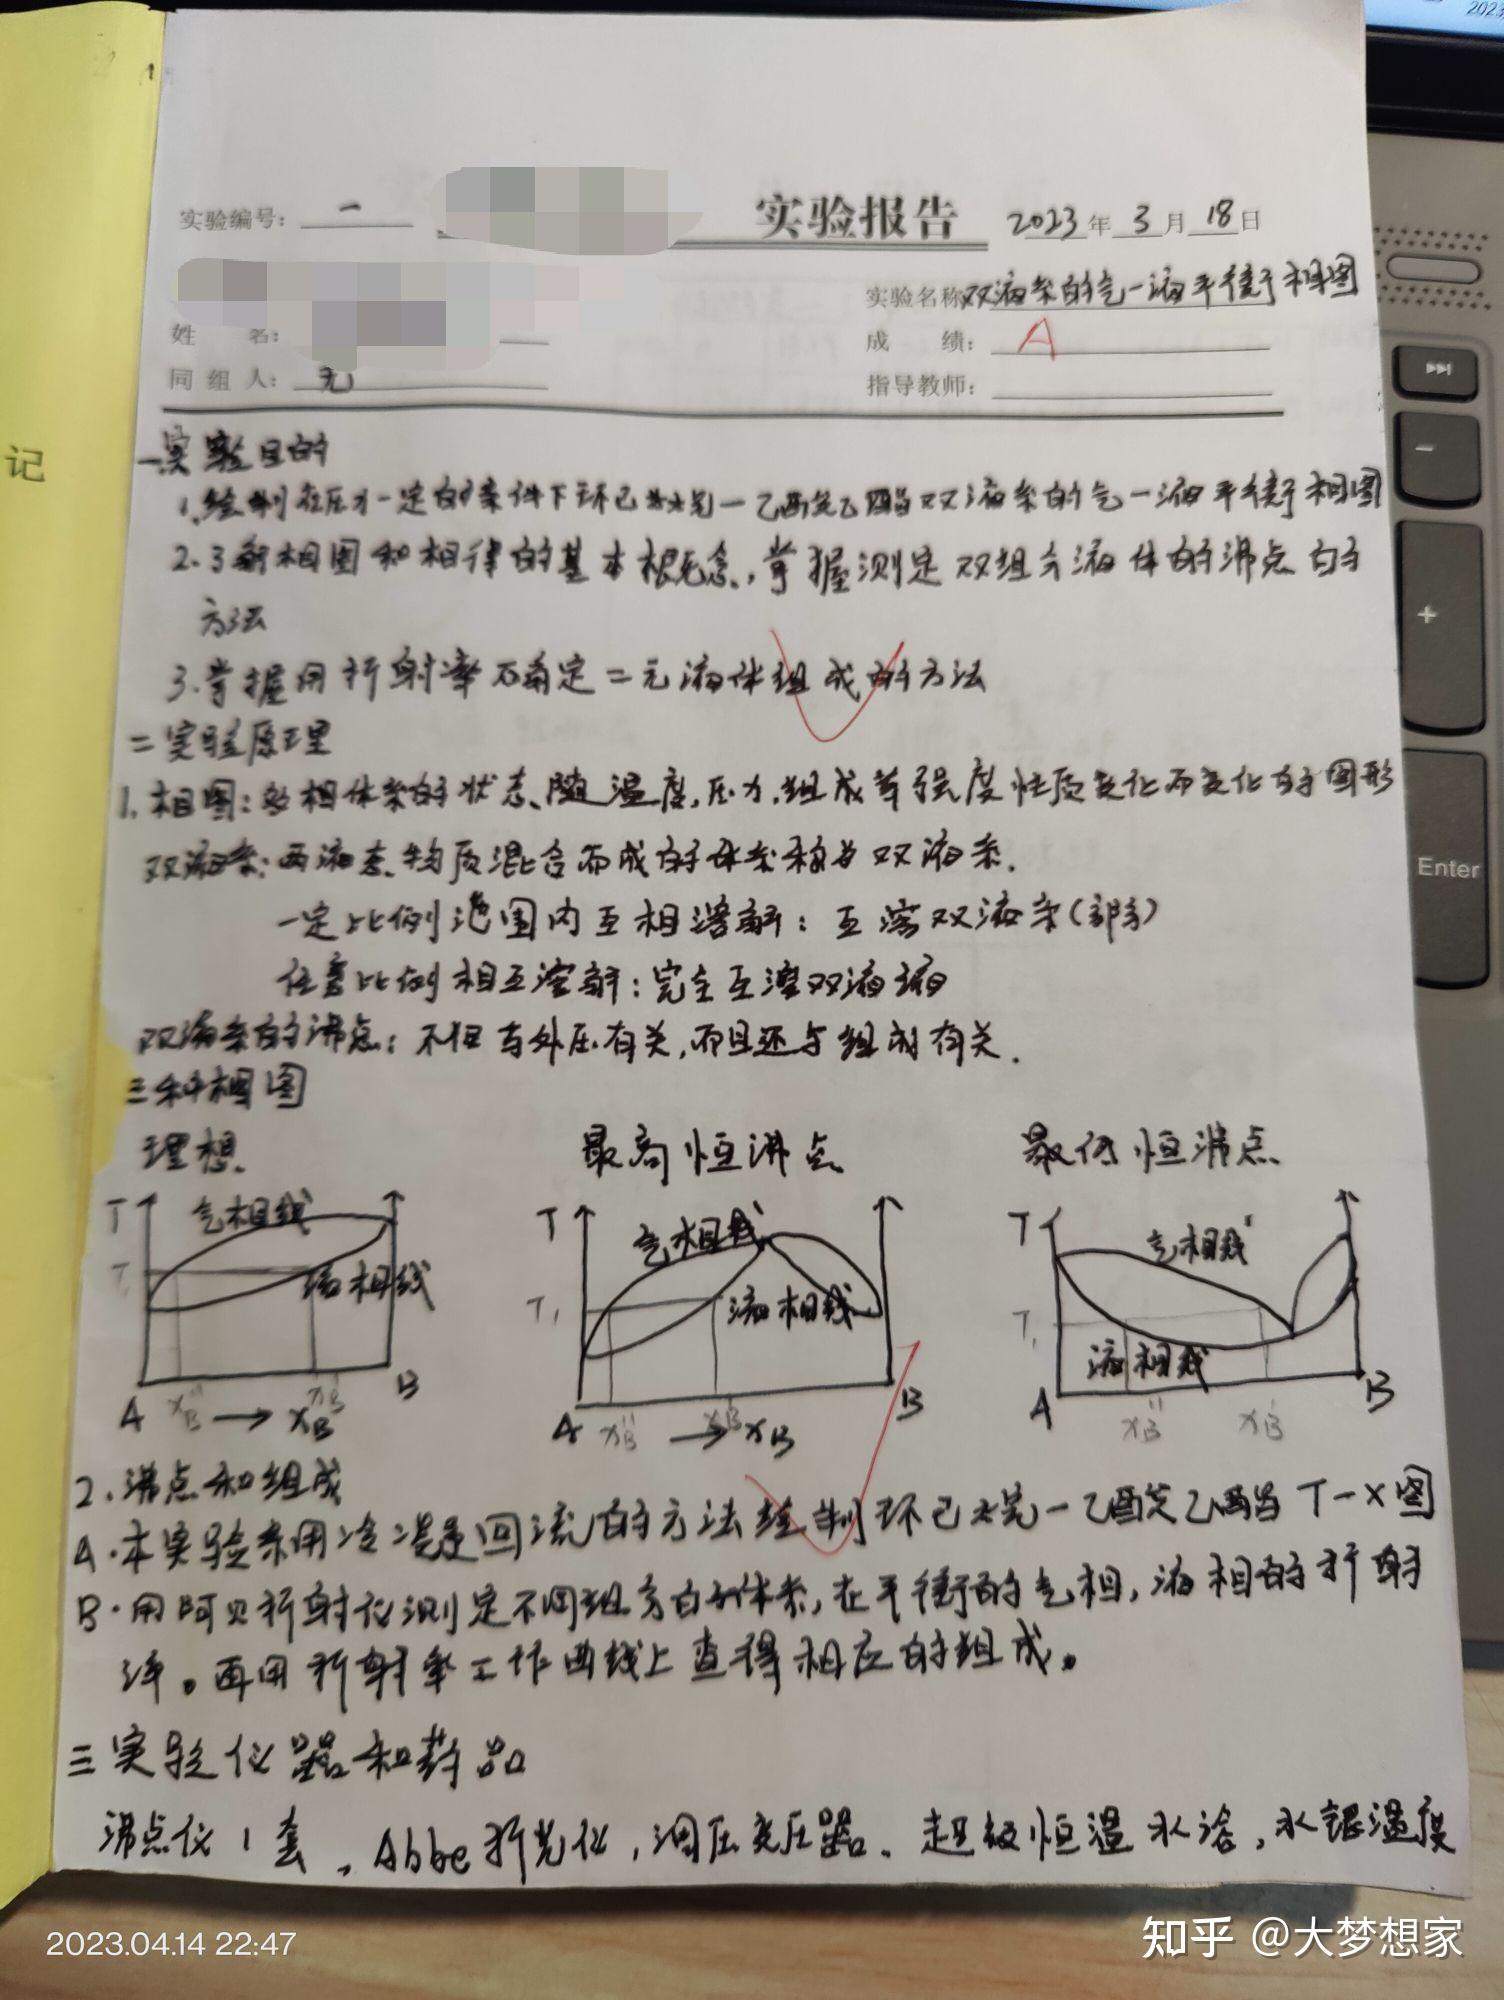 2023
记
实验编号： 一 实验报告 2023年3月18日
实验名称 双液系的气一液平衡相图
姓 名：
成 绩： A
同 组 人： 无
指导教师：
一实验目的
1.绘制在压力一定的条件下环己烷一乙酸乙酯双液系的气一液平衡相图
2.了解相图和相律的基本概念，掌握测定双组分液体的沸点的
方法
3.掌握用折射率确定二元液体组成的方法
二实验原理
1.相图：多相体系的状态随温度，压力，组成等强度性质变化而变化的图形
双液系：两液态物质混合而成的体系称为双液系.
一定比例范围内互相溶解：互溶双液系(部分)
任意比例相互溶解：完全互溶双液
双液系的沸点：不但与外压有关，而且还与组成有关.
三种相图
理想 最高恒沸点 最低恒沸点
T 气相线 T₁ 液相线 A B x_B'' → x_B x_B'
T 气相线 T₁ 液相线 A B x_B'' → x_B x_B'
T 气相线 T₁ 液相线 A B x_B'' x_B'
2.沸点和组成
A.本实验采用冷凝回流的方法绘制环己烷一乙酸乙酯T-X图
B.用阿贝折射仪测定不同组分的体系，在平衡的气相，液相的折射
率。再用折射率工作曲线上查得相应的组成。
三实验仪器和药品
沸点仪1套，Abbe折光仪，调压变压器、超级恒温水浴，水银温度
Enter
2023.04.14 22:47
知乎 @大梦想家